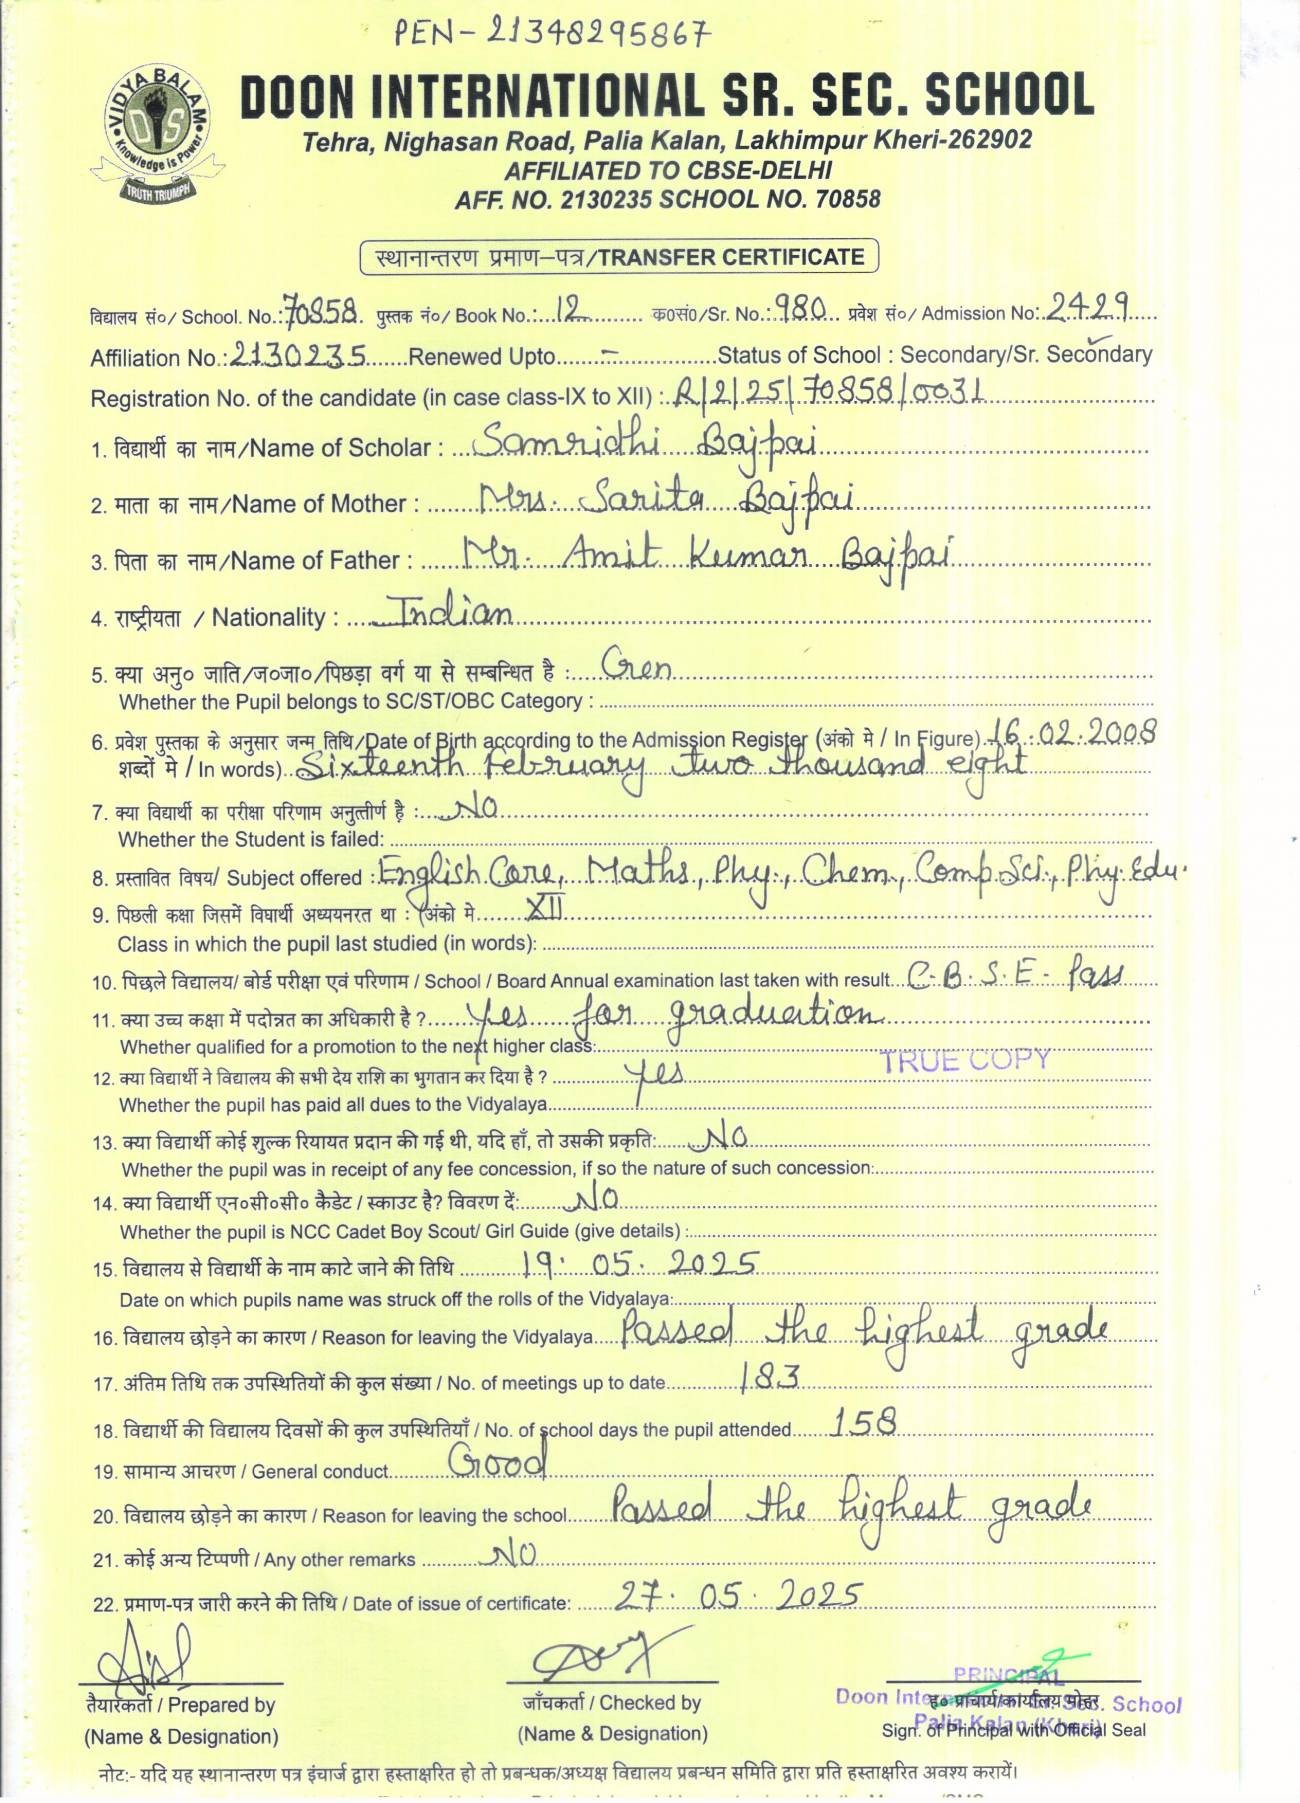 PEN- 21348295867
VIDYA BALAM
DIS
Knowledge is Power
TRUTH TRIUMPH
DOON INTERNATIONAL SR. SEC. SCHOOL
Tehra, Nighasan Road, Palia Kalan, Lakhimpur Kheri-262902
AFFILIATED TO CBSE-DELHI
AFF. NO. 2130235 SCHOOL NO. 70858
स्थानान्तरण प्रमाण–पत्र/TRANSFER CERTIFICATE
विद्यालय सं०/ School. No.: 70858 पुस्तक नं०/ Book No.: 12 क०सं०/Sr. No.: 980 प्रवेश सं०/ Admission No: 2429
Affiliation No.: 2130235 Renewed Upto - Status of School : Secondary/Sr. Secondary
Registration No. of the candidate (in case class-IX to XII) : R/2/25/70858/0031
1. विद्यार्थी का नाम/Name of Scholar : Samridhi Bajpai
2. माता का नाम/Name of Mother : Mrs. Sarita Bajpai
3. पिता का नाम/Name of Father : Mr. Amit Kumar Bajpai
4. राष्ट्रीयता / Nationality : Indian
5. क्या अनु० जाति/ज०जा०/पिछड़ा वर्ग या से सम्बन्धित है : Gen
Whether the Pupil belongs to SC/ST/OBC Category :
6. प्रवेश पुस्तका के अनुसार जन्म तिथि/Date of Birth according to the Admission Register (अंको मे / In Figure) 16.02.2008
शब्दों मे / In words) Sixteenth February two thousand eight
7. क्या विद्यार्थी का परीक्षा परिणाम अनुत्तीर्ण है : NO
Whether the Student is failed:
8. प्रस्तावित विषय/ Subject offered : English Core, Maths, Phy., Chem., Comp.Sci., Phy.Edu.
9. पिछली कक्षा जिसमें विघार्थी अध्ययनरत था : (अंको मे XII
Class in which the pupil last studied (in words):
10. पिछले विद्यालय/ बोर्ड परीक्षा एवं परिणाम / School / Board Annual examination last taken with result C.B.S.E- Pass
11. क्या उच्च कक्षा में पदोन्नत का अधिकारी है ? Yes for graduation
Whether qualified for a promotion to the next higher class:
TRUE COPY
12. क्या विद्यार्थी ने विद्यालय की सभी देय राशि का भुगतान कर दिया है ? Yes
Whether the pupil has paid all dues to the Vidyalaya
13. क्या विद्यार्थी कोई शुल्क रियायत प्रदान की गई थी, यदि हाँ, तो उसकी प्रकृति: NO
Whether the pupil was in receipt of any fee concession, if so the nature of such concession:
14. क्या विद्यार्थी एन०सी०सी० कैडेट / स्काउट है? विवरण दें: NO
Whether the pupil is NCC Cadet Boy Scout/ Girl Guide (give details) :
15. विद्यालय से विद्यार्थी के नाम काटे जाने की तिथि 19. 05. 2025
Date on which pupils name was struck off the rolls of the Vidyalaya:
16. विद्यालय छोड़ने का कारण / Reason for leaving the Vidyalaya Passed the highest grade
17. अंतिम तिथि तक उपस्थितियों की कुल संख्या / No. of meetings up to date 183
18. विद्यार्थी की विद्यालय दिवसों की कुल उपस्थितियाँ / No. of school days the pupil attended 158
19. सामान्य आचरण / General conduct Good
20. विद्यालय छोड़ने का कारण / Reason for leaving the school Passed the highest grade
21. कोई अन्य टिप्पणी / Any other remarks NO
22. प्रमाण-पत्र जारी करने की तिथि / Date of issue of certificate: 27. 05. 2025
PRINCIPAL
Doon Inte Sr. Sec. School
Palia Kalan (Kheri)
तैयारकर्ता / Prepared by जाँचकर्ता / Checked by ह० प्राचार्य/कार्यालय मोहर
(Name & Designation) (Name & Designation) Sign. of Principal with Official Seal
नोट:- यदि यह स्थानान्तरण पत्र इंचार्ज द्वारा हस्ताक्षरित हो तो प्रबन्धक/अध्यक्ष विद्यालय प्रबन्धन समिति द्वारा प्रति हस्ताक्षरित अवश्य करायें।